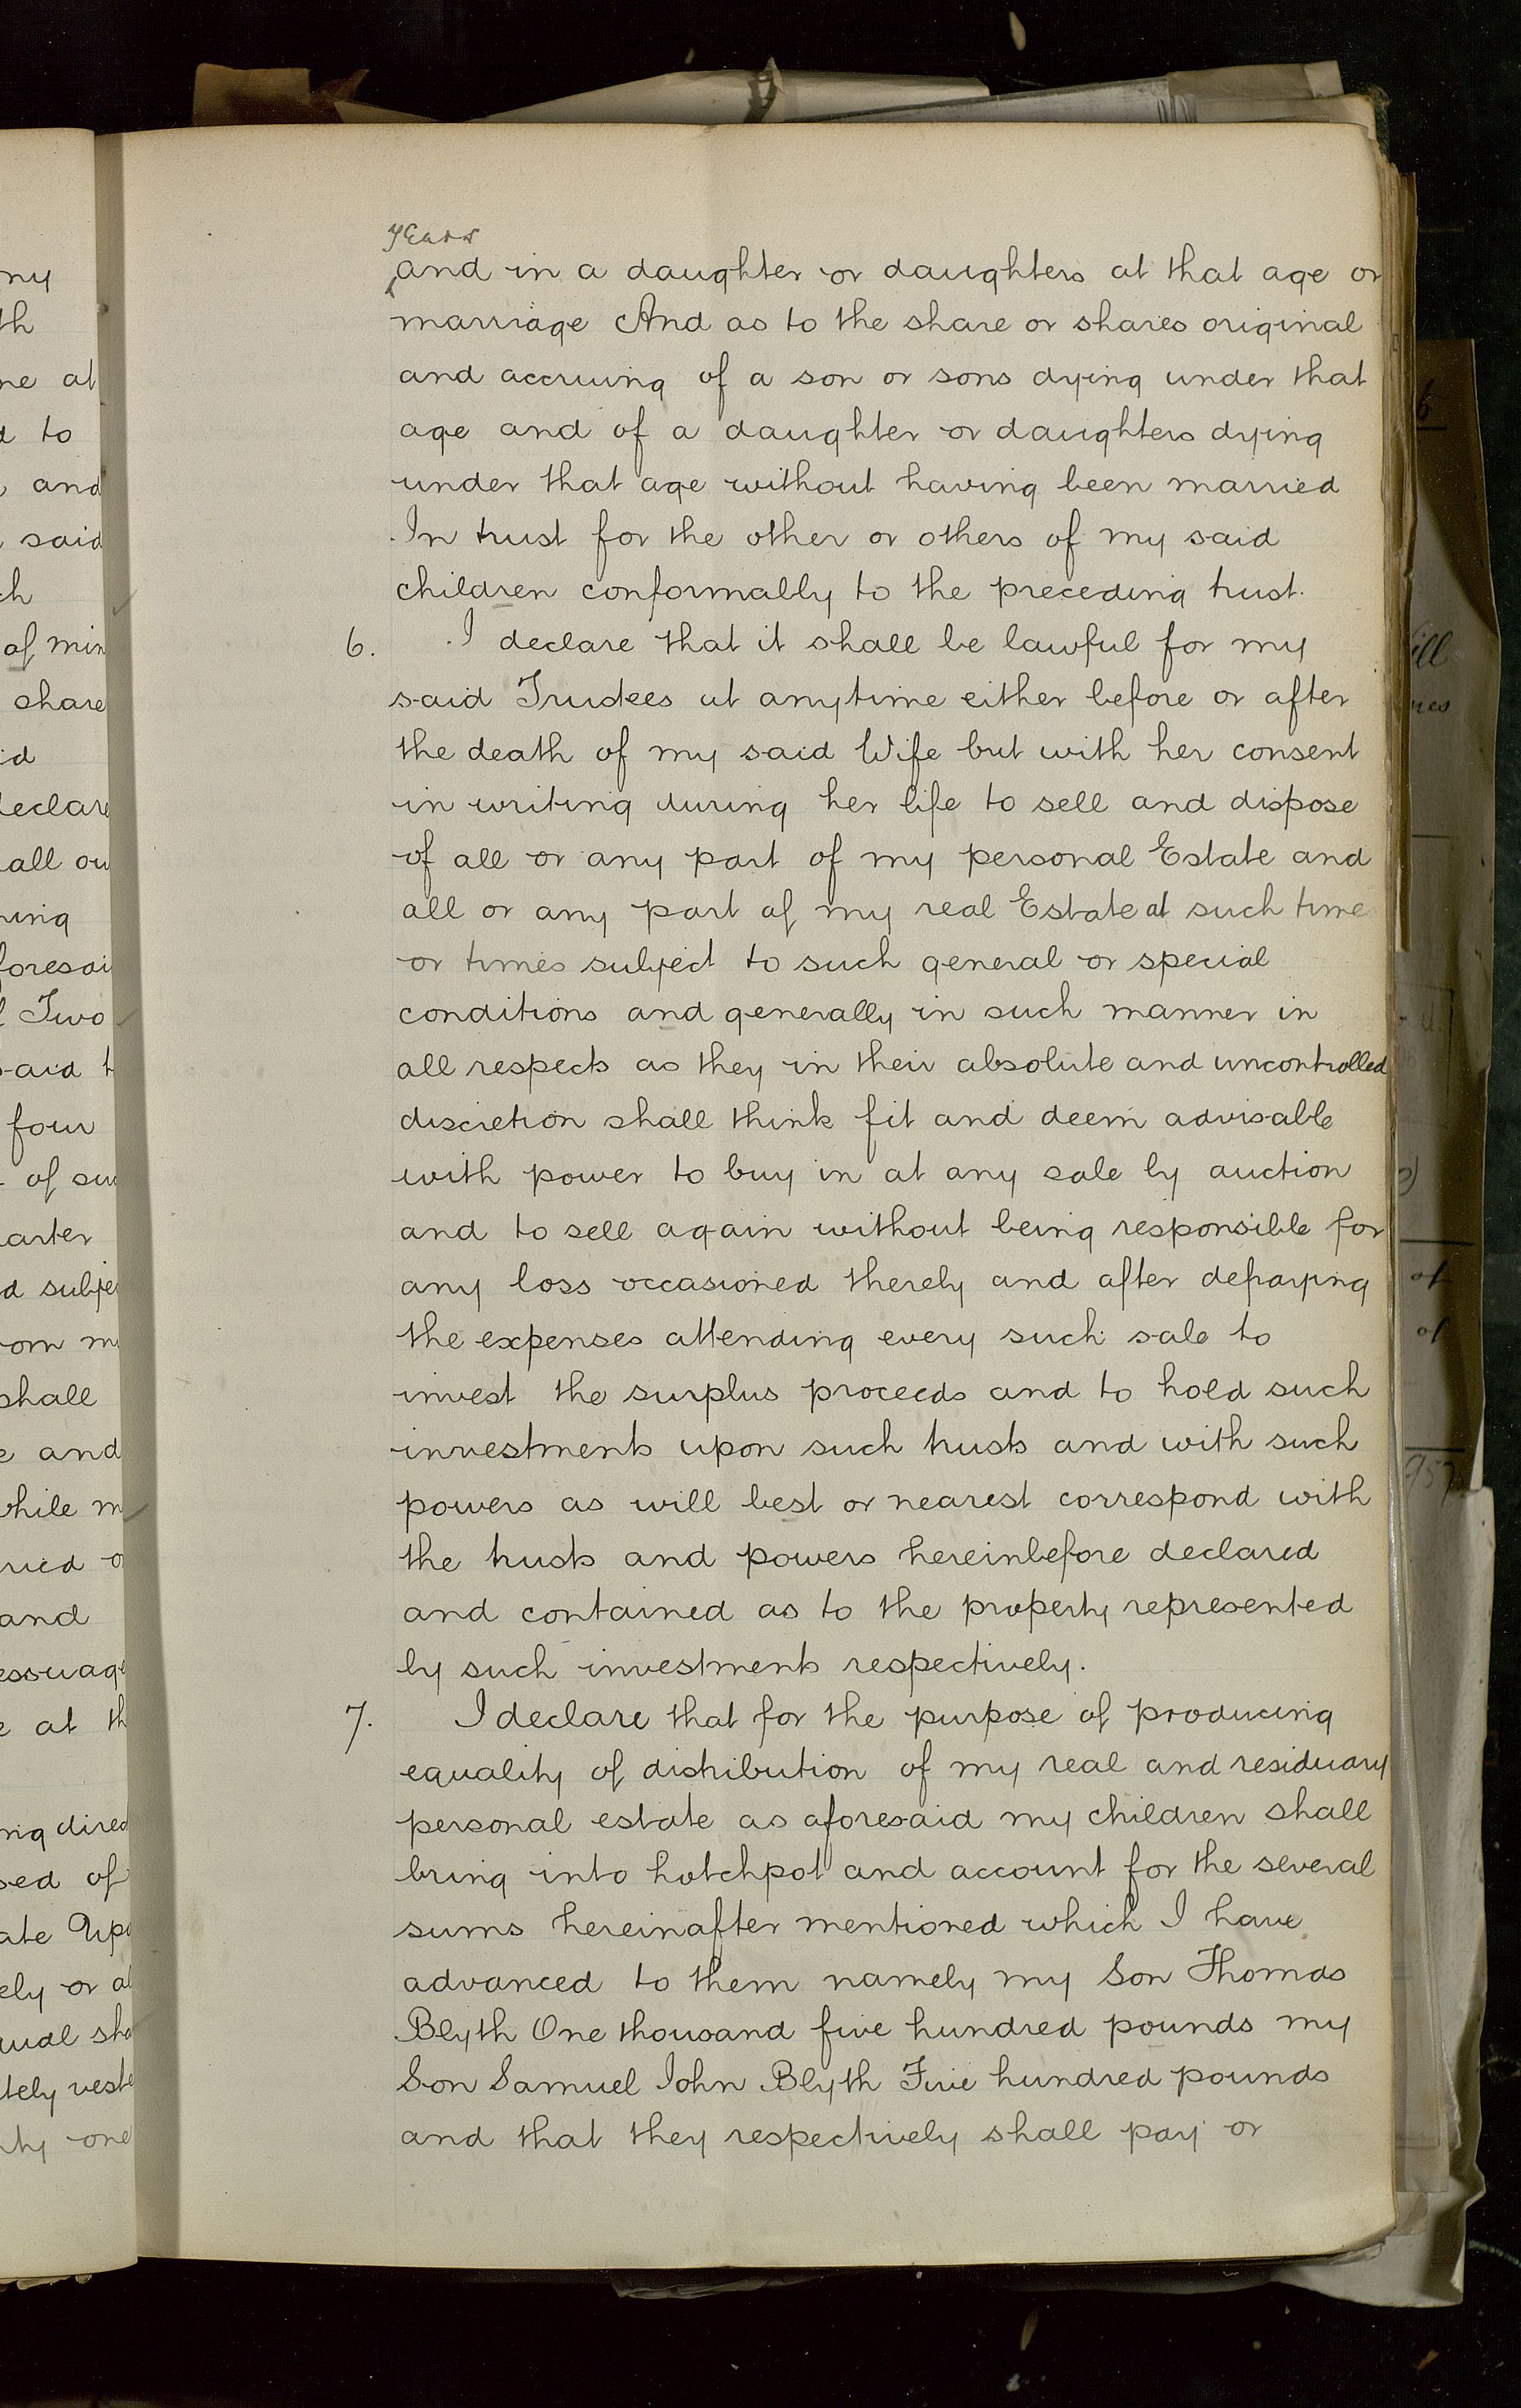 years
and in a daughter or daughters at that age or
marriage And as to the share or shares original
and accruing of a son or sons dying under that
age and of a daughter or daughters dying
under that age without having been married
In trust for the other or others of my said
children conformally to the preceding trust.
6. I declare that it shall be lawful for my
said Trustees at anytime either before or after
the death of my said Wife but with her consent
in writing during her life to sell and dispose
of all or any part of my personal Estate and
all or any part of my real Estate at such time
or times subject to such general or special
conditions and generally in such manner in
all respects as they in their absolute and uncontrolled
discretion shall think fit and deem advisable
with power to buy in at any sale by auction
and to sell again without being responsible for
any loss occasioned thereby and after defraying
the expenses attending every such sale to
invest the surplus proceeds and to hold such
investments upon such trusts and with such
powers as will best or nearest correspond with
the trusts and powers hereinbefore declared
and contained as to the property represented
by such investments respectively.
7. I declare that for the purpose of producing
equality of distribution of my real and residuary
personal estate as aforesaid my children shall
bring into hotchpot and account for the several
sums hereinafter mentioned which I have
advanced to them namely my Son Thomas
Blyth One thousand five hundred pounds my
Son Samuel John Blyth Five hundred pounds
and that they respectively shall pay or